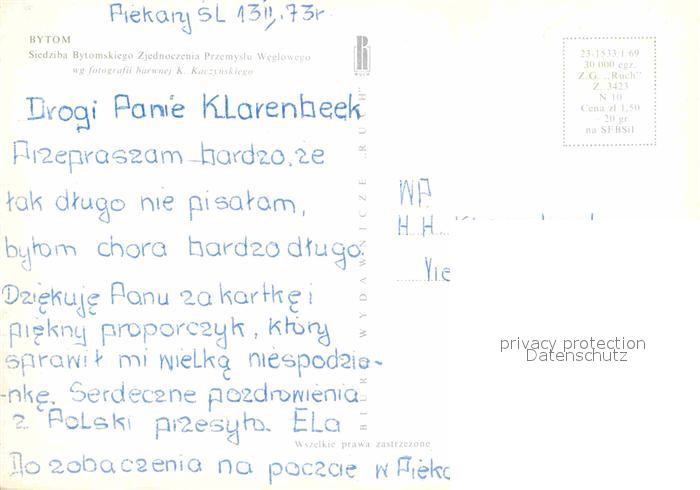 Piekary ŚL 13 II, 73r
BYTOM
Siedziba Bytomskiego Zjednoczenia Przemysłu Węglowego
wg fotografii barwnej K. Kaczyńskiego
RUCH
23-1533/I 69
30.000 egz.
Z.G. „Ruch"
Z. 3423
N 10
Cena zł 1,50
+ 20 gr
na SFBSiI
Drogi Panie Klarenbeek
Przepraszam bardzo, że
tak długo nie pisałam,
byłam chora bardzo długo.
Dziękuję Panu za kartkę i
piękny proporczyk, który
sprawił mi wielką niespodzia-
-nkę. Serdeczne pozdrowienia
z Polski przesyła. Ela
Do zobaczenia na poczcie w Pieka
BIURO WYDAWNICZE „RUCH"
Wszelkie prawa zastrzeżone
WP.
H. H.
privacy protection
Datenschutz